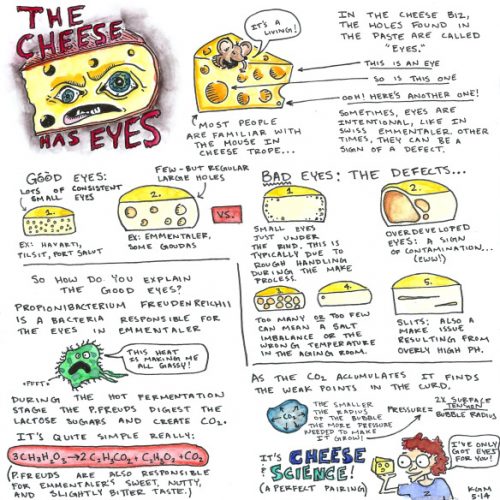 THE
CHEESE
HAS EYES
IT'S A
LIVING!
MOST PEOPLE
ARE FAMILIAR WITH
THE MOUSE IN
CHEESE TROPE...
IN THE CHEESE BIZ,
THE HOLES FOUND IN
THE PASTE ARE CALLED
"EYES."
THIS IS AN EYE
SO IS THIS ONE
OOH! HERE'S ANOTHER ONE!
SOMETIMES, EYES ARE
INTENTIONAL, LIKE IN
SWISS EMMENTALER. OTHER
TIMES, THEY CAN BE A
SIGN OF A DEFECT.
GOOD EYES:
LOTS OF CONSISTENT
SMALL EYES
1.
EX: HAVARTI,
TILSIT, PORT SALUT
FEW - BUT REGULAR
LARGE HOLES
2.
EX: EMMENTALER,
SOME GOUDAS
VS.
BAD EYES: THE DEFECTS...
1.
SMALL EYES
JUST UNDER
THE RIND. THIS IS
TYPICALLY DUE TO
ROUGH HANDLING
DURING THE MAKE
PROCESS.
2.
OVERDEVELOPED
EYES: A SIGN
OF CONTAMINATION...
(EWW!)
3.
4.
TOO MANY OR TOO FEW
CAN MEAN A SALT
IMBALANCE OR THE
WRONG TEMPERATURE
IN THE AGING ROOM.
5.
SLITS; ALSO A
MAKE ISSUE
RESULTING FROM
OVERLY HIGH PH.
SO HOW DO YOU EXPLAIN
THE GOOD EYES?
PROPIONIBACTERIUM FREUDENREICHII
IS A BACTERIA RESPONSIBLE FOR
THE EYES IN EMMENTALER
THIS HEAT
IS MAKING ME
ALL GASSY!
*PFFT*
DURING THE HOT FERMENTATION
STAGE THE P.FREUDS DIGEST THE
LACTOSE SUGARS AND CREATE CO₂.
IT'S QUITE SIMPLE REALLY:
(P.FREUDS ARE ALSO RESPONSIBLE
FOR EMMENTALER'S SWEET, NUTTY,
AND SLIGHTLY BITTER TASTE.)
AS THE CO₂ ACCUMULATES IT FINDS
THE WEAK POINTS IN THE CURD.
CO₂
THE SMALLER
THE RADIUS
OF THE BUBBLE
THE MORE PRESSURE
NEEDED TO MAKE
IT GROW!
PRESSURE = 2X SURFACE TENSION / BUBBLE RADIUS
IT'S CHEESE
SCIENCE!
(A PERFECT PAIRING)
I'VE ONLY
GOT EYES
FOR YOU!
KGM